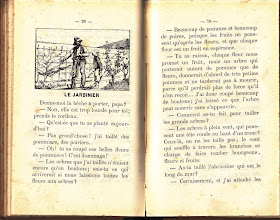 — 78 —
LE JARDINIER
Donne-moi la bêche à porter, papa?
— Non, elle est trop lourde pour toi,
prends le cordeau.
— Qu'est-ce que tu as planté aujour-
d'hui?
— Pas grand'chose! j'ai taillé des
pommiers, des poiriers...
— Oh! tu as coupé ces belles fleurs
de pommiers! C'est dommage!
— Les arbres que j'ai taillés n'étaient
encore qu'en boutons; sais-tu ce qui
arriverait si nous laissions toutes les
fleurs aux arbres?
— 79 —
— Beaucoup de pommes et beaucoup
de poires, puisque les fruits ne pous-
sent qu'après les fleurs, et que chaque
fleur est un fruit en espérance.
— Tu as raison, chaque fleur nous
promet un fruit, mais un arbre qui
porterait autant de pommes que de
fleurs, donnerait d'abord de très petites
pommes et ne tarderait pas à mourir,
parce qu'il perdrait plus de force qu'il
n'en reçoit... J'ai donc coupé beaucoup
de boutons; j'ai laissé ce que l'arbre
peut nourrir sans s'appauvrir.
— Comment as-tu fait pour tailler
les grands arbres?
— Les arbres à plein vent, qui pous-
sent une tête ronde au haut d'un tronc?
Ceux-là, on ne les taille pas; le vent
qui souffle à travers les branches se
charge de faire tomber bourgeons,
fleurs et fruits.
— As-tu taillé l'abricotier qui est le
long du mur?
— Certainement, et j'ai attaché les